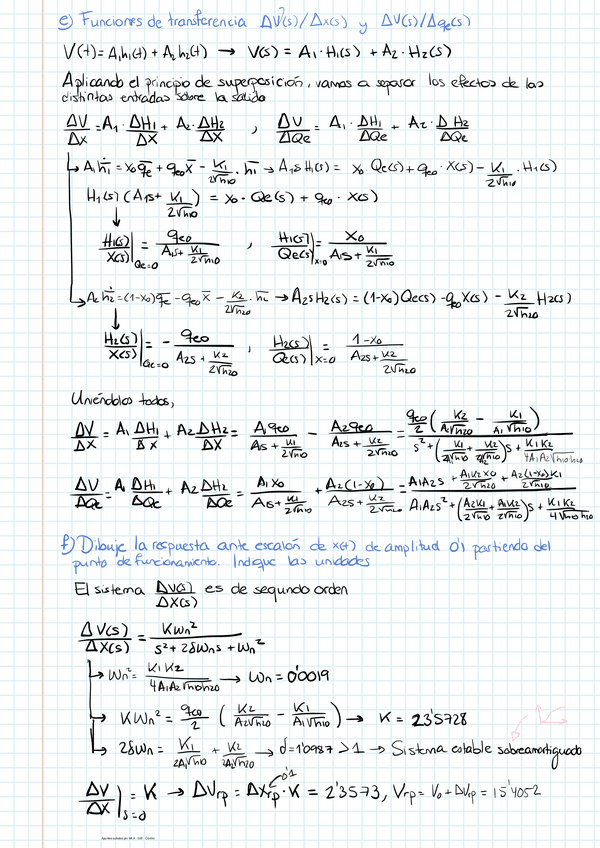 e) Funciones de transferencia ΔV(s)/Δx(s) y ΔV(s)/Δqe(s)
V(t)= A1h1(t) + A2h2(t) → V(s) = A1·H1(s) + A2·H2(s)
Aplicando el principio de superposición, vamos a separar los efectos de las
distintas entradas sobre la salida
ΔV/ΔX = A1·ΔH1/ΔX + A2·ΔH2/ΔX , ΔV/ΔQe = A1·ΔH1/ΔQe + A2·ΔH2/ΔQe
↳ A1ḣ1 = x0 q̅e + qe0 x̅ − K1/(2√h10)·h̅1 → A1sH1(s) = x0·Qe(s) + qe0·X(s) − K1/(2√h10)·H1(s)
H1(s)(A1s + K1/(2√h10)) = x0·Qe(s) + qe0·X(s)
H1(s)/X(s)|Qe=0 = qe0/(A1s + K1/(2√h10)) , H1(s)/Qe(s)|x=0 = X0/(A1s + K1/(2√h10))
↳ A2ḣ2 = (1-x0)q̅e − qe0 x̅ − K2/(2√h20)·h̅2 → A2sH2(s) = (1-x0)Qe(s) − qe0X(s) − K2/(2√h20) H2(s)
H2(s)/X(s)|Qe=0 = − qe0/(A2s + K2/(2√h20)) , H2(s)/Qe(s)|X=0 = (1-X0)/(A2s + K2/(2√h20))
Uniéndolos todos,
ΔV/ΔX = A1 ΔH1/ΔX + A2 ΔH2/ΔX = A1qe0/(A1s + K1/(2√h10)) − A2qe0/(A2s + K2/(2√h20)) = qe0/2 (K2/(A2√h20) − K1/(A1√h10)) / (s² + (K1/(2A1√h10) + K2/(2A2√h20))s + K1K2/(4A1A2√h10h20))
ΔV/ΔQe = A1 ΔH1/ΔQe + A2 ΔH2/ΔQe = A1X0/(A1s + K1/(2√h10)) + A2(1-X0)/(A2s + K2/(2√h20)) = (A1A2s + A1K2X0/(2√h20) + A2(1-X0)K1/(2√h10)) / (A1A2s² + (A2K1/(2√h10) + A1K2/(2√h20))s + K1K2/(4√h10h20))
f) Dibuje la respuesta ante escalón de x(t) de amplitud 0'1 partiendo del
punto de funcionamiento. Indique las unidades
El sistema ΔV(s)/ΔX(s) es de segundo orden
ΔV(s)/ΔX(s) = Kωn²/(s² + 2δωns + ωn²)
↳ ωn² = K1K2/(4A1A2√h10h20) → ωn = 0'0019
↳ Kωn² = qe0/2 (K2/(A2√h20) − K1/(A1√h10)) → K = 23'5728
↳ 2δωn = K1/(2A1√h10) + K2/(2A2√h20) → δ=1'0987 > 1 → Sistema estable sobreamortiguado
ΔV/ΔX|s=0 = K → ΔVrp = ΔXrp·K = 2'3573, Vrp = V0 + ΔVrp = 15'4052
0'1